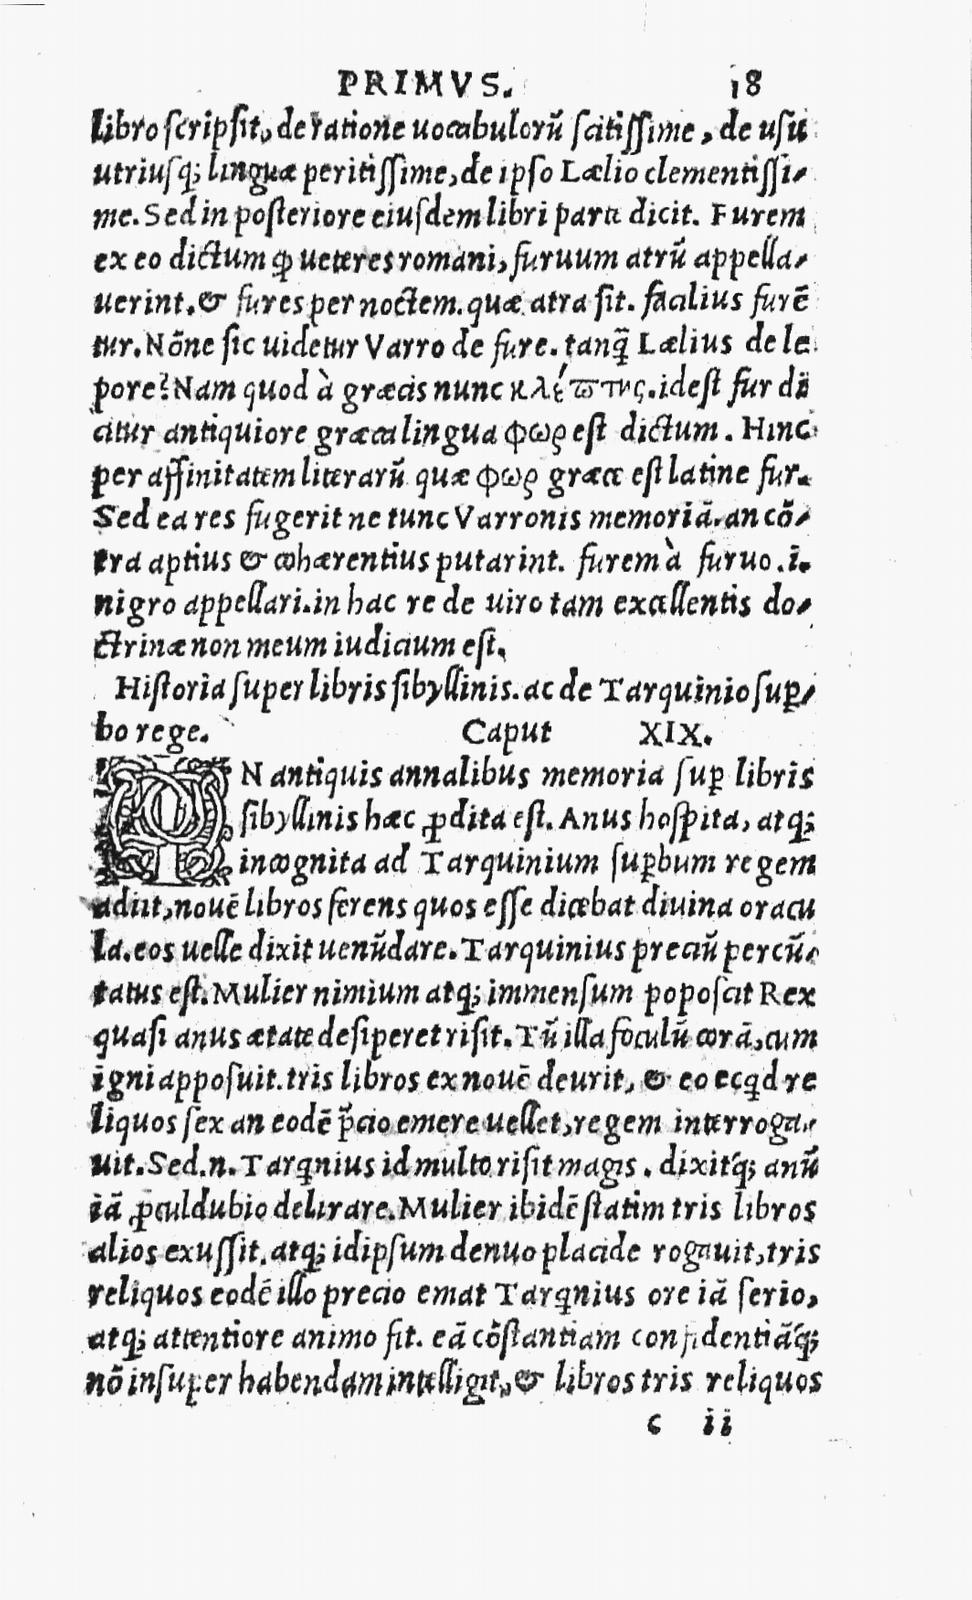 PRIMVS. 18
libro scripsit, de ratione uocabulorũ scitissime, de usu
utriusq; linguæ peritissime, de ipso Lælio clementissi-
me. Sed in posteriore eiusdem libri parte dicit. Furem
ex eo dictum ꝙ ueteres romani, furuum atrũ appella-
uerint. & fures per noctem. quæ atra sit. facilius furẽ
tur. Nõne sic uidetur Varro de fure. tanq̃ Lælius de le
pore? Nam quod à græcis nunc κλέϖτης. id est fur di
citur antiquiore græca lingua φωρ est dictum. Hinc
per affinitatem literarũ quæ φωρ græce est latine fur.
Sed ea res fugerit ne tunc Varronis memoriã. an cõ-
tra aptius & cohærentius putarint. furem à furuo .i.
nigro appellari. in hac re de uiro tam excellentis do-
ctrinæ non meum iudicium est.
Historia super libris sibyllinis. ac de Tarquinio suꝑ-
bo rege. Caput XIX.
N antiquis annalibus memoria suꝑ libris
sibyllinis hæc ꝓdita est. Anus hospita, atq;
incognita ad Tarquinium suꝑbum regem
adiit, nouẽ libros ferens quos esse dicebat diuina oracu
la. eos uelle dixit uenũdare. Tarquinius preciũ percũ-
tatus est. Mulier nimium atq; immensum poposcit Rex
quasi anus ætate desiperet risit. Tũ illa foculũ corã, cum
igni apposuit. tris libros ex nouẽ deurit, & eo ecqd re
liquos sex an eodẽ p̃cio emere uellet, regem interroga-
uit. Sed .n. Tarqnius id multo risit magis. dixitq; anũ
iã ꝓculdubio delirare. Mulier ibidẽ statim tris libros
alios exussit. atq; id ipsum denuo placide rogauit, tris
reliquos eodẽ illo precio emat Tarqnius ore iã serio,
atq; attentiore animo fit. eã cõstantiam confidentiãq;
nõ insuper habendam intelligit, & libros tris reliquos
c ii